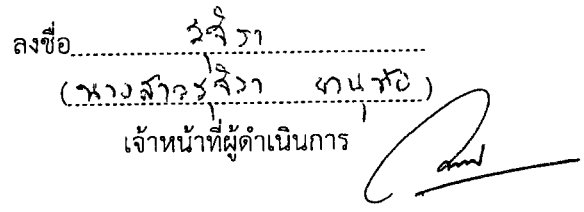 ลงชื่อ รุจิรา
(นางสาวรุจิรา)
เจ้าหน้าที่ผู้ดำเนินการ